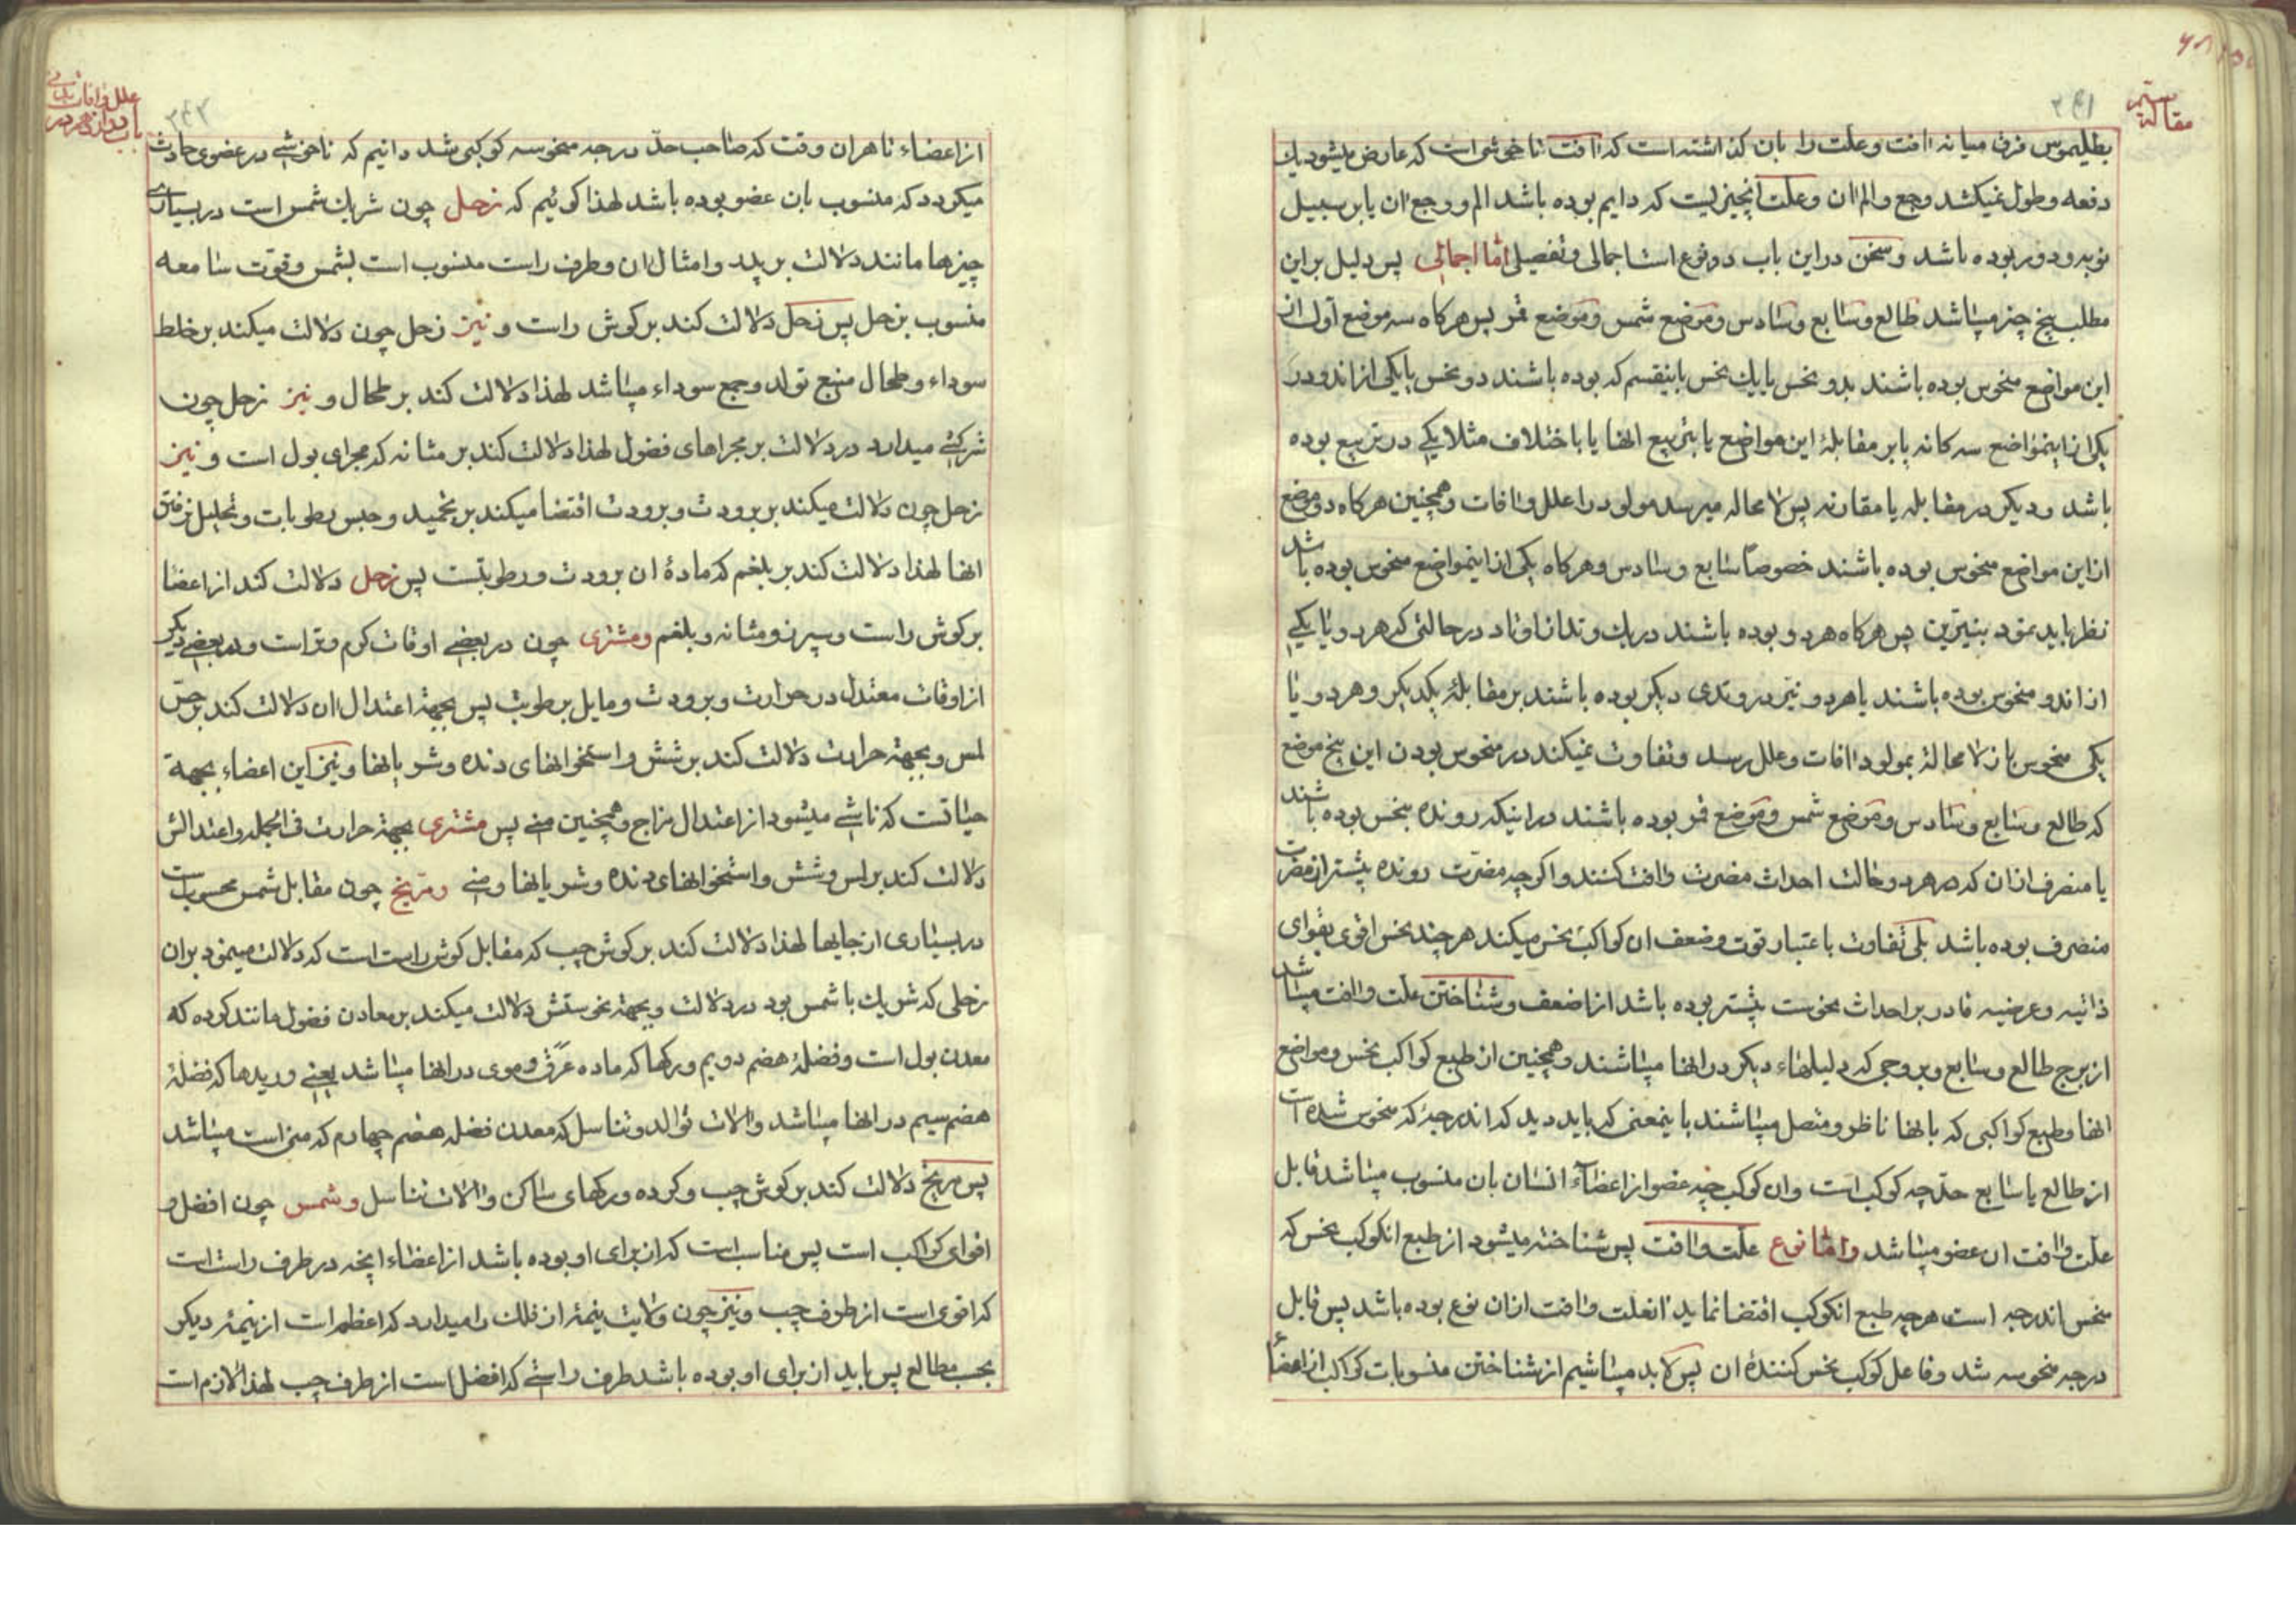 مقاله سیّم
۲۴۱
بطلیموس فرق میانه آفت و علت را بان کذاشته است که آفت ناخوشی است که عارض میشود بیک
دفعه و طول نمیکشد وجع و الم ان و علت انچیزیست که دایم بوده باشد الم و وجع ان یا بر سبیل
نوبه و دور بوده باشد و سخن دراین باب دو نوع است اجمالی و تفصیلی اما اجمالی پس دلیل براین
مطلب پنج چیز میباشد طالع و سابع و سادس و موضع شمس و موضع قمر پس هرکاه سه موضع اول از
این مواضع منحوس بوده باشند بدو نحس یا بیک نحس باینقسم که بوده باشند دو نحس یا یکی از اندو در
یکی از اینمواضع سه کانه یا بر مقابلهٔ این مواضع یا بتربیع انها یا باختلاف مثلا یکی در تربیع بوده
باشد و دیکر در مقابله یا مقارنه پس لامحاله میرسد مولود را علل و افات و همچنین هرکاه دو موضع
ازاین مواضع منحوس بوده باشند خصوصاً سابع و سادس و هرکاه یکی از اینمواضع منحوس بوده باشد
نظر باید نمود بنیّرین پس هرکاه هر دو بوده باشند در یک وتد از اوتاد در حالتی که هر دو یا یکی
از اندو منحوس بوده باشند یا هر دو نیّر در وتدی دیکر بوده باشند بر مقابلهٔ یکدیکر و هر دو یا
یکی منحوس باز لامحالة بمولود آفات و علل رسد و تفاوت نمیکند در منحوس بودن این پنج موضع
که طالع و سابع و سادس و موضع شمس و موضع قمر بوده باشند در اینکه رونده بنحس بوده باشند
یا منصرف ازان که در هر دو حالت احداث مضرت و افت کنند و اکرچه مضرّت رونده بیشتر از مضرت
منصرف بوده باشد بلی تفاوت باعتبار قوت و ضعف ان کواکب نحس میکند هرچند نحس اقوی بقوای
ذاتیه و عرضیه قادر بر احداث نحوست بیشتر بوده باشد از اضعف و شناختن علت و افت میباشد
از برج طالع و سابع و بروجی که دلیلهاء دیکر در انها میباشند و همچنین از طبع کواکب نحس و مواضع
انها و طبع کواکبی که بانها ناظر و متصل میباشند باینمعنی که باید دید که اندرجهٔ که منحوس شده است
از طالع یا سابع حدّ چه کوکب است و ان کوکب چه عضو از اعضآء انسان بان منسوب میباشد قابل
علت و افت ان عضو میباشد و امّا نوع علت و افت پس شناخته میشود از طبع انکوکب نحس که
منحس اندرجه است هرچه طبع انکوکب اقتضا نماید انعلت و افت ازان نوع بوده باشد پس قابل
درجه منحوسه شد و فاعل کوکب نحس کنندهٔ ان پس لابد میباشیم از شناختن منسوبات کواکب از اعضآء
علل و افات بدنی
باب دوازدهم در
۲۴۲
از اعضاء تا هران وقت که صاحب حدّ درجه منحوسه کوکبی شد دانیم که ناخوشی در عضوی حادث
میکردد که منسوب بان عضو بوده باشد لهذا کوئیم که زحل چون شریک شمس است در بسیاری
چیزها مانند دلالت بر پدر و امثال ان و طرف راست منسوب است بشمس و قوّت سامعه
منسوب بزحل پس زحل دلالت کند بر کوش راست و نیز زحل چون دلالت میکند بر خلط
سوداء و طحال منبع تولد و جمع سوداء میباشد لهذا دلالت کند بر طحال و نیز زحل چون
شرکتی میدارد در دلالت بر مجراهای فضول لهذا دلالت کند بر مثانه که مجرای بول است و نیز
زحل چون دلالت میکند بر برودت و برودت اقتضا میکند بر تجمید و حبس رطوبات و تحلیل نرفتن
انها لهذا دلالت کند بر بلغم که مادهٔ ان برودت و رطوبتست پس زحل دلالت کند از اعضا
بر کوش راست و سپرز و مثانه و بلغم و مشتری چون در بعضی اوقات کرم و تر است و در بعضی دیکر
از اوقات معتدل در حرارت و برودت و مایل برطوبت پس بجهة اعتدال ان دلالت کند بر حسّ
لمس و بجهة حرارت دلالت کند بر شش و استخوانهای دنده و شریانها و نیز این اعضاء بجهة
حیاتست که ناشی میشود از اعتدال مزاج و همچنین منی پس مشتری بجهة حرارت فی الجمله و اعتدالش
دلالت کند بر لمس و شش و استخوانهای دنده و شریانها و منی و مرّیخ چون مقابل شمس محسوب است
در بسیاری از جایها لهذا دلالت کند بر کوش چپ که مقابل کوش راست است که دلالت مینمود بران
زحلی که شریک با شمس بود در دلالت و بجهة نحوستش دلالت میکند بر معادن فضول مانند کرده که
معدن بول است و فضلهٔ هضم دویم و رکها که ماده عَرَق و موی در انها میباشد یعنی وریدها که فضلهٔ
هضم سیم در انها میباشد و الات توالد و تناسل که معدن فضله هضم چهارم که منی است میباشد
پس مریخ دلالت کند بر کوش چپ و کرده و رکهای ساکن و الات تناسل و شمس چون افضل و
اقوای کواکب است پس مناسب است که از برای او بوده باشد از اعضاء انچه در طرف راست است
که اقوی است از طرف چپ و نیز چون ولایت نیمهٔ از فلک را میدارد که اعظم است از نیمهٔ دیکر
بحسب مطالع پس باید از برای او بوده باشد طرف راستی که افضل است از طرف چپ لهذا لازم است